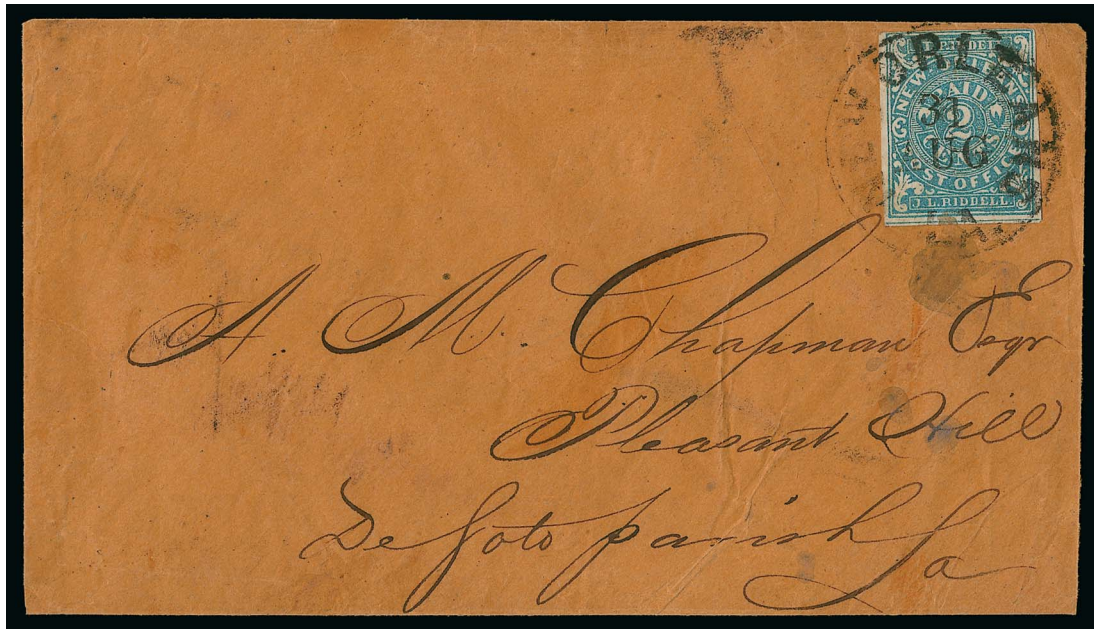 NEW ORLEANS
31
UG
LA
NEW ORLEANS
PAID
2
CENTS
POST OFFICE
J. L. RIDDELL.
A. M. Chapman Esqr
Pleasant Hill
De Soto parish La